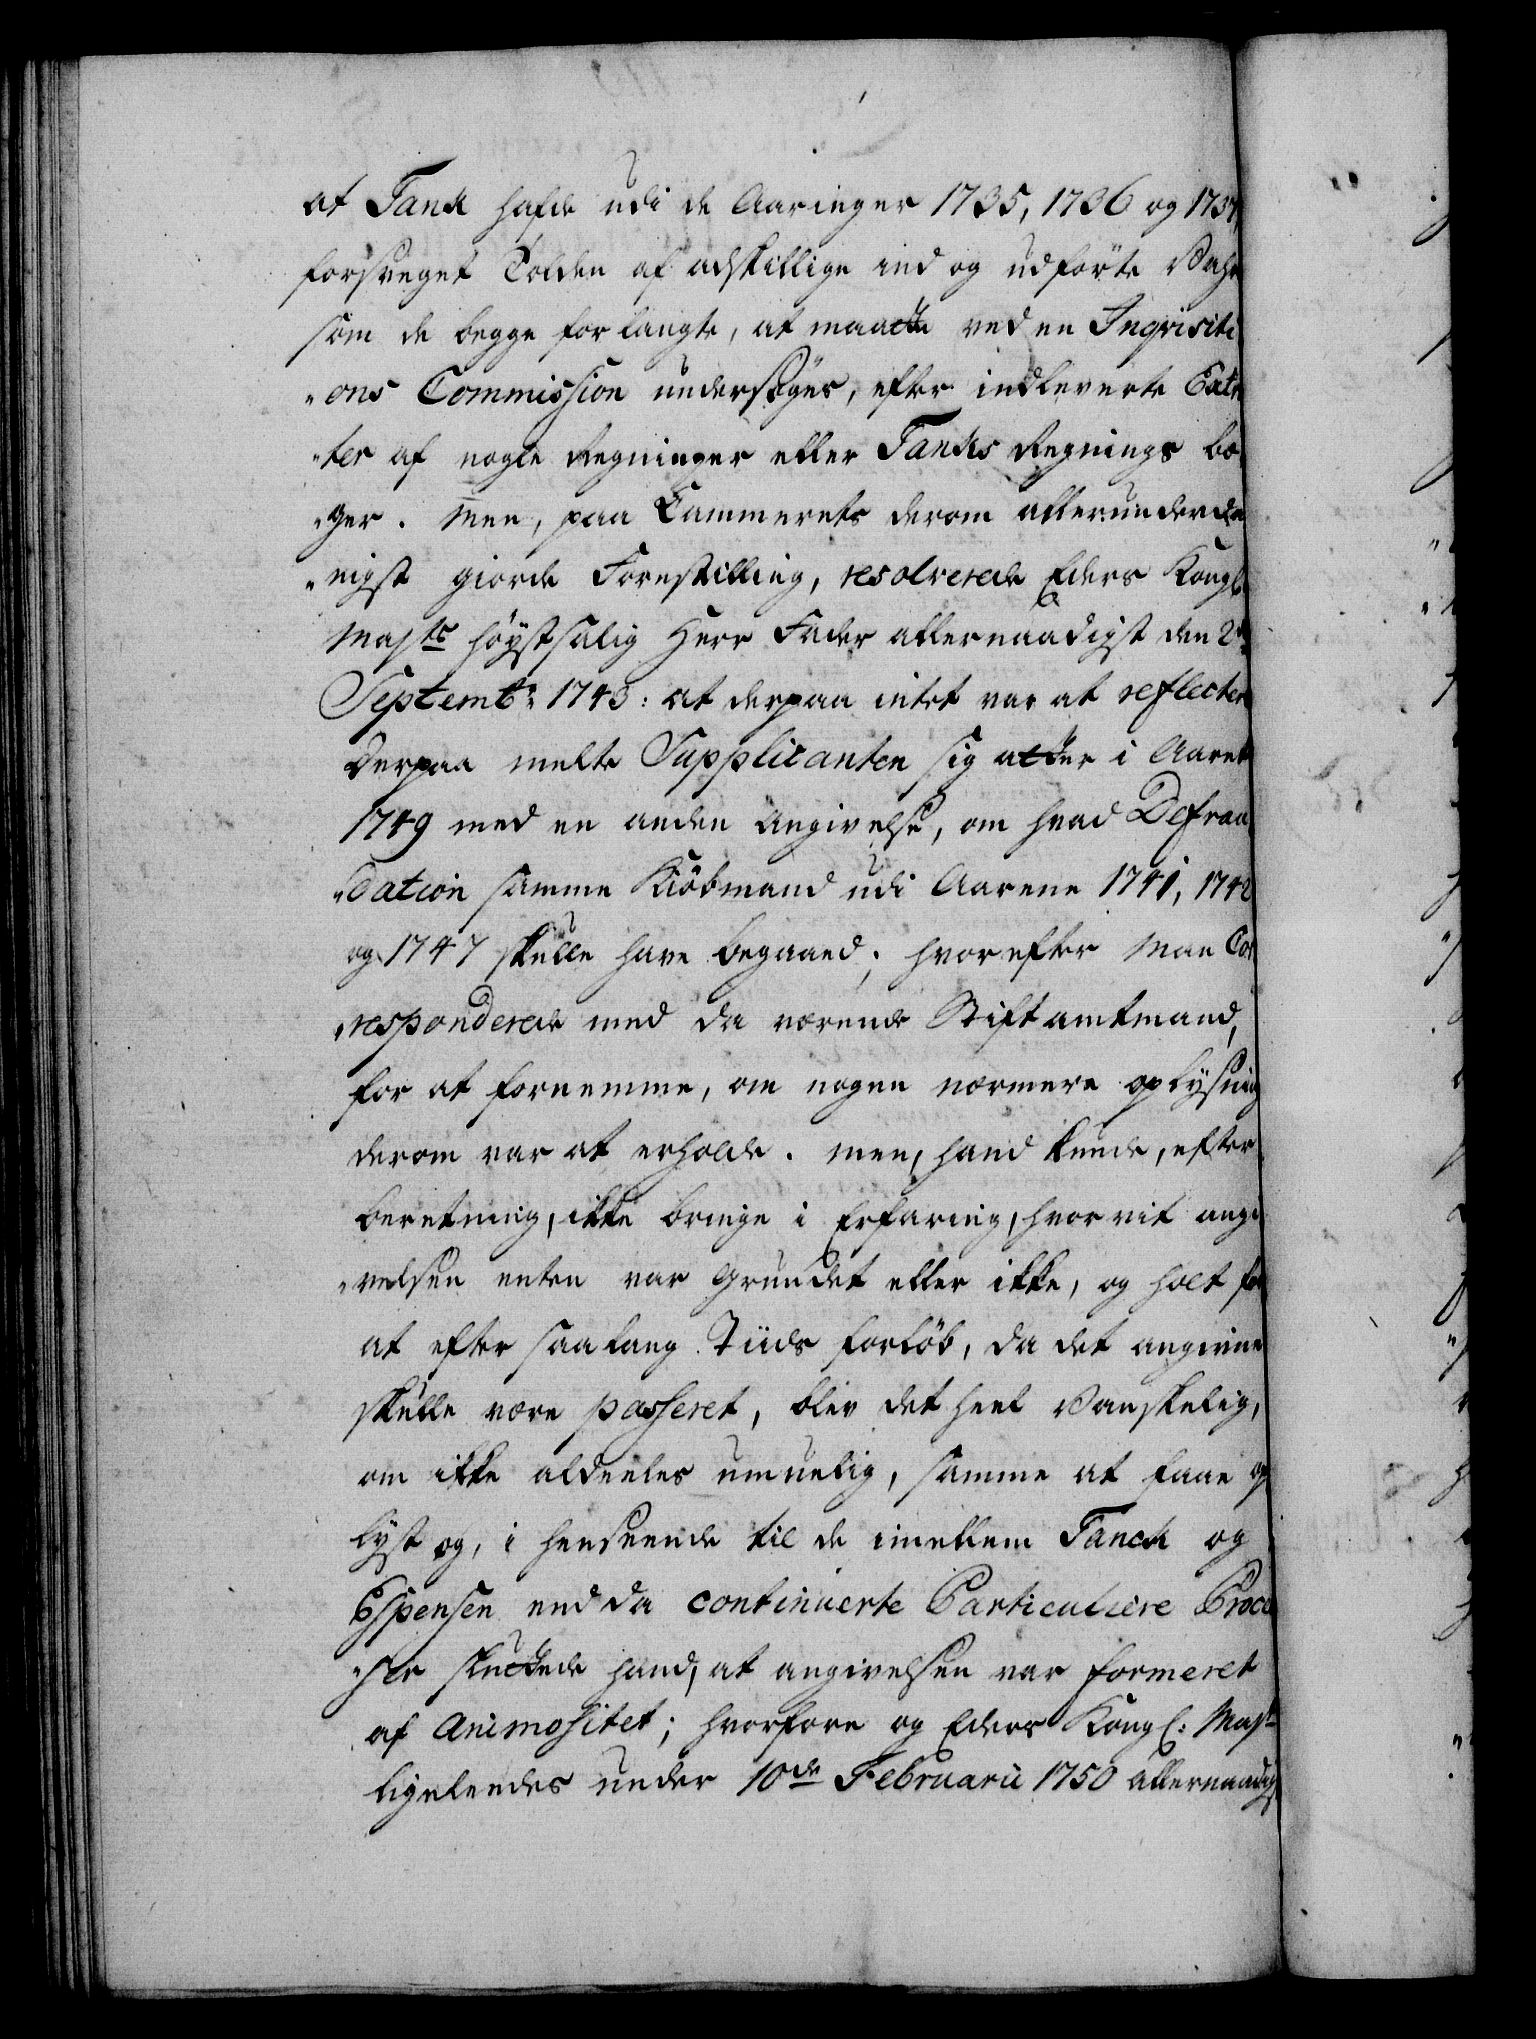 at Tank hafde udi de Aaringer 1735, 1736 og 1737,
forsveget Tolden af adskillige ind og udförte Vahr
som de begge forlangte, at maatte ved en Inqvisiti
„ons Commission undersøges, efter indleverte Extr
„ter af nogle Regninger eller Tanks Regnings bø
„ger. Men, paa Cammerets derom allerunderda
„nigst giorde Forestilling, resolverede Eders Kongl
Majts höystsalig Herr Fader allernaadigst den 2den
Septembr 1743: at derpaa intet var at reflecter
Derpaa melte Supplicanten sig atter i Aaret
1749 med en anden Angivelse, om hvad Defrau
„dation samme Kiöbmand udi Aarene 1741, 1742
og 1747 skulle have begaaed; hvorefter Man Cor
„responderede med da værende Stiftamtmand,
for at fornemme, om nogen nærmere oplysning
derom var at erholde. Men, hand kunde, efter
beretning, ikke bringe i Erfaring, hvorvit angi
„velsen enten var grundet eller ikke, og holt for
at efter saa lang Tiids forlöb, da det angivne
skulle være passeret, blev det heel Vanskelig,
om ikke aldeeles umuelig, samme at faae op
lyst og, i henseende til de imellem Tanck og
Espensen endda continuerte Particuliere Proce
„sser sluttede hand, at angivelsen var formeret
af Animositet; hvorfore og Eders Kongl: Majt
ligeleedes under 10de Februarii 1750 allernaadigst